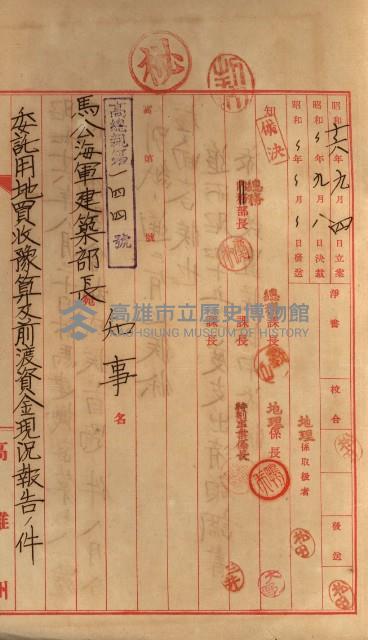 秘
昭和十六年九月四日立案
昭和〃年九月八日決裁
昭和〃年〃月〃日發送
淨書
校合
發送
知事
代決
總務部長
總務課長
課長
課長
地理係長
特別事業係長
地理係取扱者
高總親第一四四號
高 第 號
知事名
馬公海軍建築部長宛
委託用地買收豫算及前渡資金現況報告ノ件
高雄州
高雄市立歷史博物館
KAOHSIUNG MUSEUM OF HISTORY